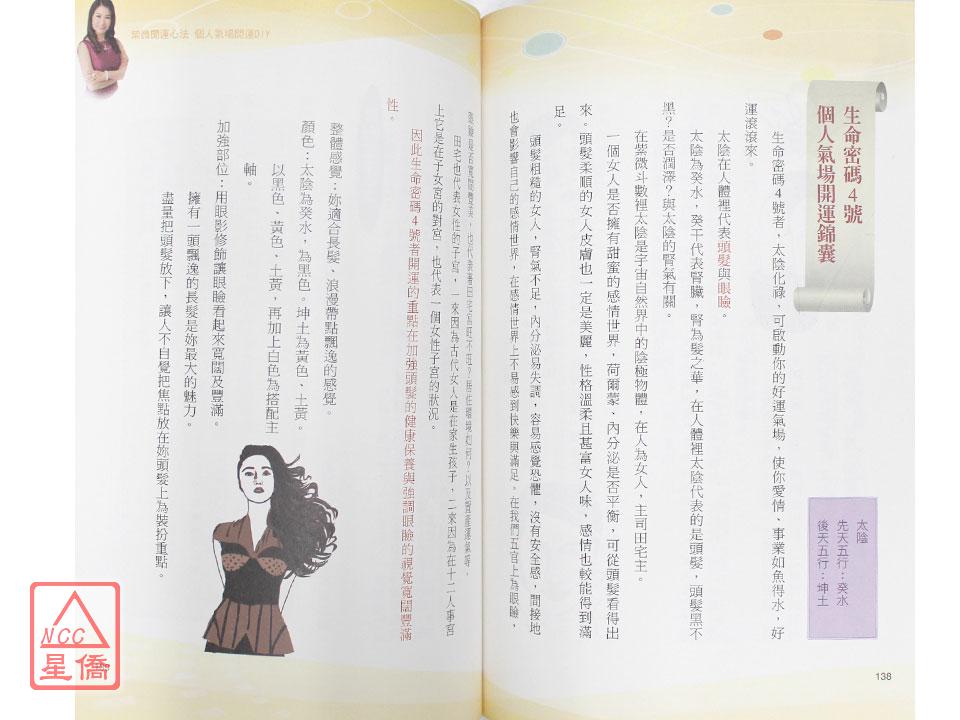 生命密碼4號
個人氣場開運錦囊
太陰
先天五行：癸水
後天五行：坤土
生命密碼4號者，太陰化祿，可啟動你的好運氣場，使你愛情、事業如魚得水，好
運滾滾來。
太陰在人體裡代表頭髮與眼瞼。
太陰為癸水，癸干代表腎臟，腎為髮之華，在人體裡太陰代表的是頭髮，頭髮黑不
黑？是否潤澤？與太陰的腎氣有關。
在紫微斗數裡太陰是宇宙自然界中的陰極物體，在人為女人，主司田宅主。
一個女人是否擁有甜蜜的感情世界，荷爾蒙、內分泌是否平衡，可從頭髮看得出
來。頭髮柔順的女人皮膚也一定是美麗，性格溫柔且甚富女人味，感情也較能得到滿
足。
頭髮粗糙的女人，腎氣不足，內分泌易失調，容易感覺恐懼，沒有安全感，間接地
也會影響自己的感情世界，在感情世界上不易感到快樂與滿足。在我們五官上為眼瞼，
138
開運心法 個人氣場開運DIY
眼瞼是否寬闊豐美，也代表著田宅宮旺不旺？居住環境如何？以及置產運氣等，
田宅也代表女性的子宮，一來因為古代女人是在家生孩子，二來因為在十二人事宮
上它是在子女宮的對宮，也代表一個女性子宮的狀況。
因此生命密碼4號者開運的重點在加強頭髮的健康保養與強調眼瞼的視覺寬闊豐滿
性。
整體感覺：妳適合長髮、浪漫帶點飄逸的感覺。
顏色：太陰為癸水，為黑色。坤土為黃色、土黃。
以黑色、黃色、土黃，再加上白色為搭配主
軸。
加強部位：用眼影修飾讓眼瞼看起來寬闊及豐滿。
擁有一頭飄逸的長髮是妳最大的魅力。
盡量把頭髮放下，讓人不自覺把焦點放在妳頭髮上為裝扮重點。
NCC
星僑